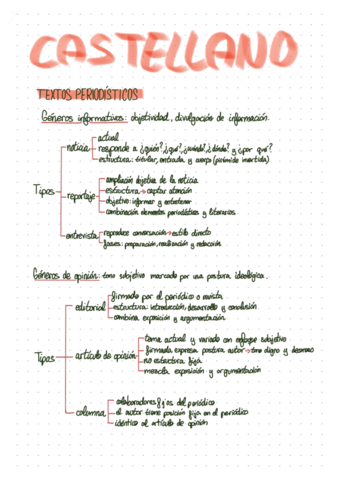 CASTELLANO
TEXTOS PERIODÍSTICOS
Géneros informativos: objetividad, divulgación de información.
Tipos
noticia
actual
responde a ¿quién? ¿qué? ¿cuándo? ¿dónde? y ¿por qué?
estructura: titular, entrada y cuerpo (pirámide invertida)
reportaje
ampliación objetiva de la noticia
estructura → captar atención
objetivo: informar y entretener
combinación elementos periodísticos y literarios
entrevista
reproduce conversación → estilo directo
fases: preparación, realización y redacción
Géneros de opinión: tono subjetivo marcado por una postura ideológica.
Tipos
editorial
firmado por el periódico o revista
estructura: introducción, desarrollo y conclusión
combina exposición y argumentación
artículo de opinión
tema actual y variado con enfoque subjetivo
firmada, expresa postura autor → tono digno y decoroso
no estructura fija
mezcla exposición y argumentación
columna
colaboradores fijos del periódico
el autor tiene posición fija en el periódico
idéntico al artículo de opinión